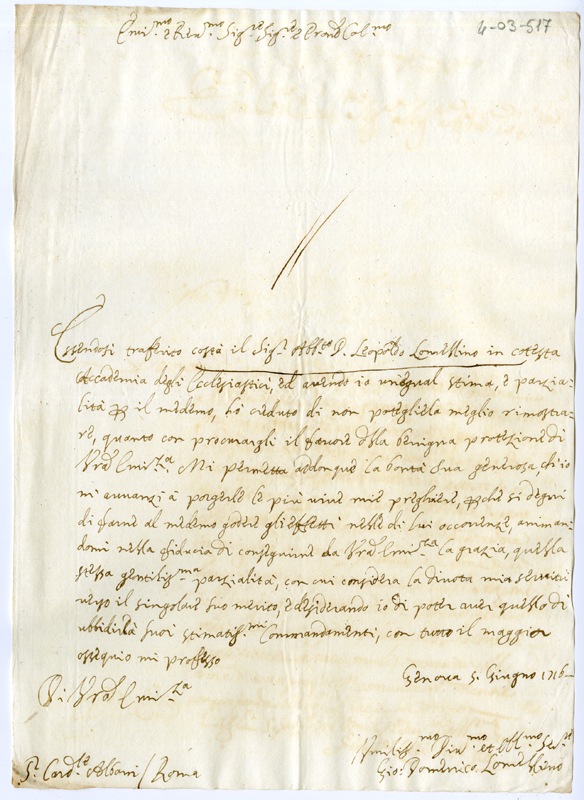 4-03-517
Em.mo e Rev.mo Sig.re Sig.re e Pron Col.mo
Essendosi trasferito costà il Sig.r Abb.te D. Leopoldo Lomellino in cotesta
Accademia degli Ecclesiastici, ed avendo io unegual stima, e parzia=
lità per il medemo, hò creduto di non potegliela meglio rimostra=
re, quanto con procurargli il favore della benigna protezione di
Vra Emi.za. Mi permetta addonque la bontà sua generosa ch'io
mi avvanzi à porgerle le più vive mie preghiere, perche si degni
di farne al medemo godere gli effetti nelle di lui occorrenze, animan
domi nella fiducia di conseguirne da Vra Emi.za la grazia, quella
stessa gentilis.ma parzialità, con cui considera la divota mia servitù
verso il singolare suo merito, e desiderando io di poter aver quello di
ubbidire à suoi stimatis.mi Commandamenti, con tutto il maggior
ossequio mi professo
Genova 5. Giugno 1716
Di Vra Emi.za
Umilis.mo Div.mo et obl.mo Ser.re
Gio: Domenico Lomellino
S.r Card.le Albani / Roma